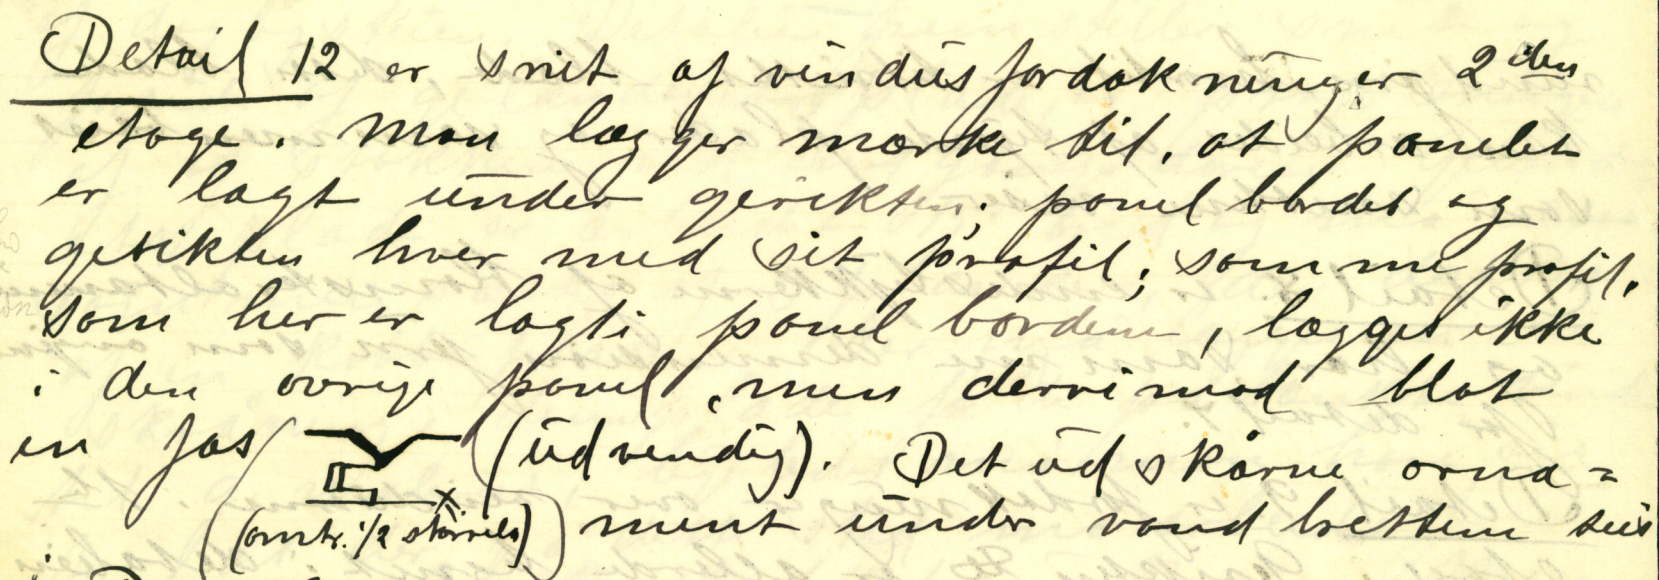 Detail 12 er snit af vindusfordakninger 2den
etage. Man lægger mærke til, at panelet
er lagt under gerikten; panel bordet og
gerikten hver med sit profil; samme profil,
som her er lagt i panel bordene, lægges ikke
i den øvrige panel, men derrimod blot
en fas (udvendig). Det udskårne orna=
(omtr. 1/2 størrels) ment under vand brettene sees